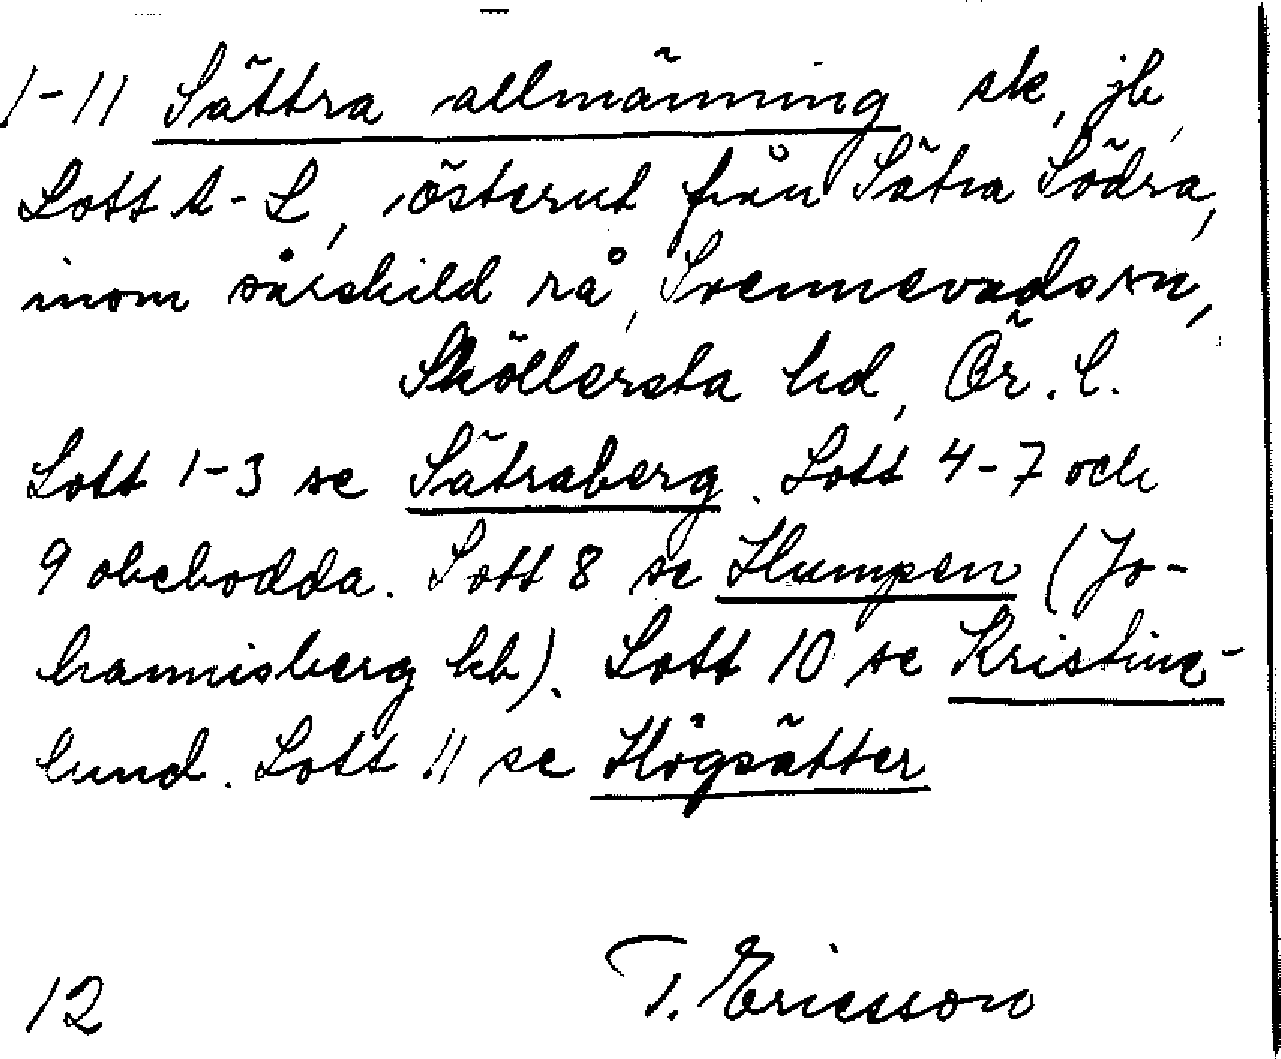 1-11 Sättra allmänning sk, jb,
Lott A-L, österut från Sätra Södra,
inom särskild rå, Svennevads sn,
Sköllersta hd, Ör. l.
Lott 1-3 se Sätraberg. Lott 4-7 och
9 obebodda. Lott 8 se Humpen (Jo-
hannisberg kb). Lott 10 se Kristine-
lund. Lott 11 se Högsätter
12 T. Ericsson